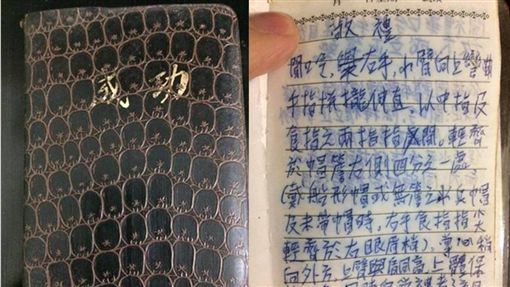 成功
敬禮
聞口令，舉右手，小臂向上彎曲
手指併攏伸直，以中指及
食指之兩指指
輕齊
於帽簷右側四分之一處
(戴船形帽或無簷之水兵帽
及未帶帽時，右手食指指尖
輕齊於右眼眉梢)，掌心稍
向外
上臂與肩同高上體保